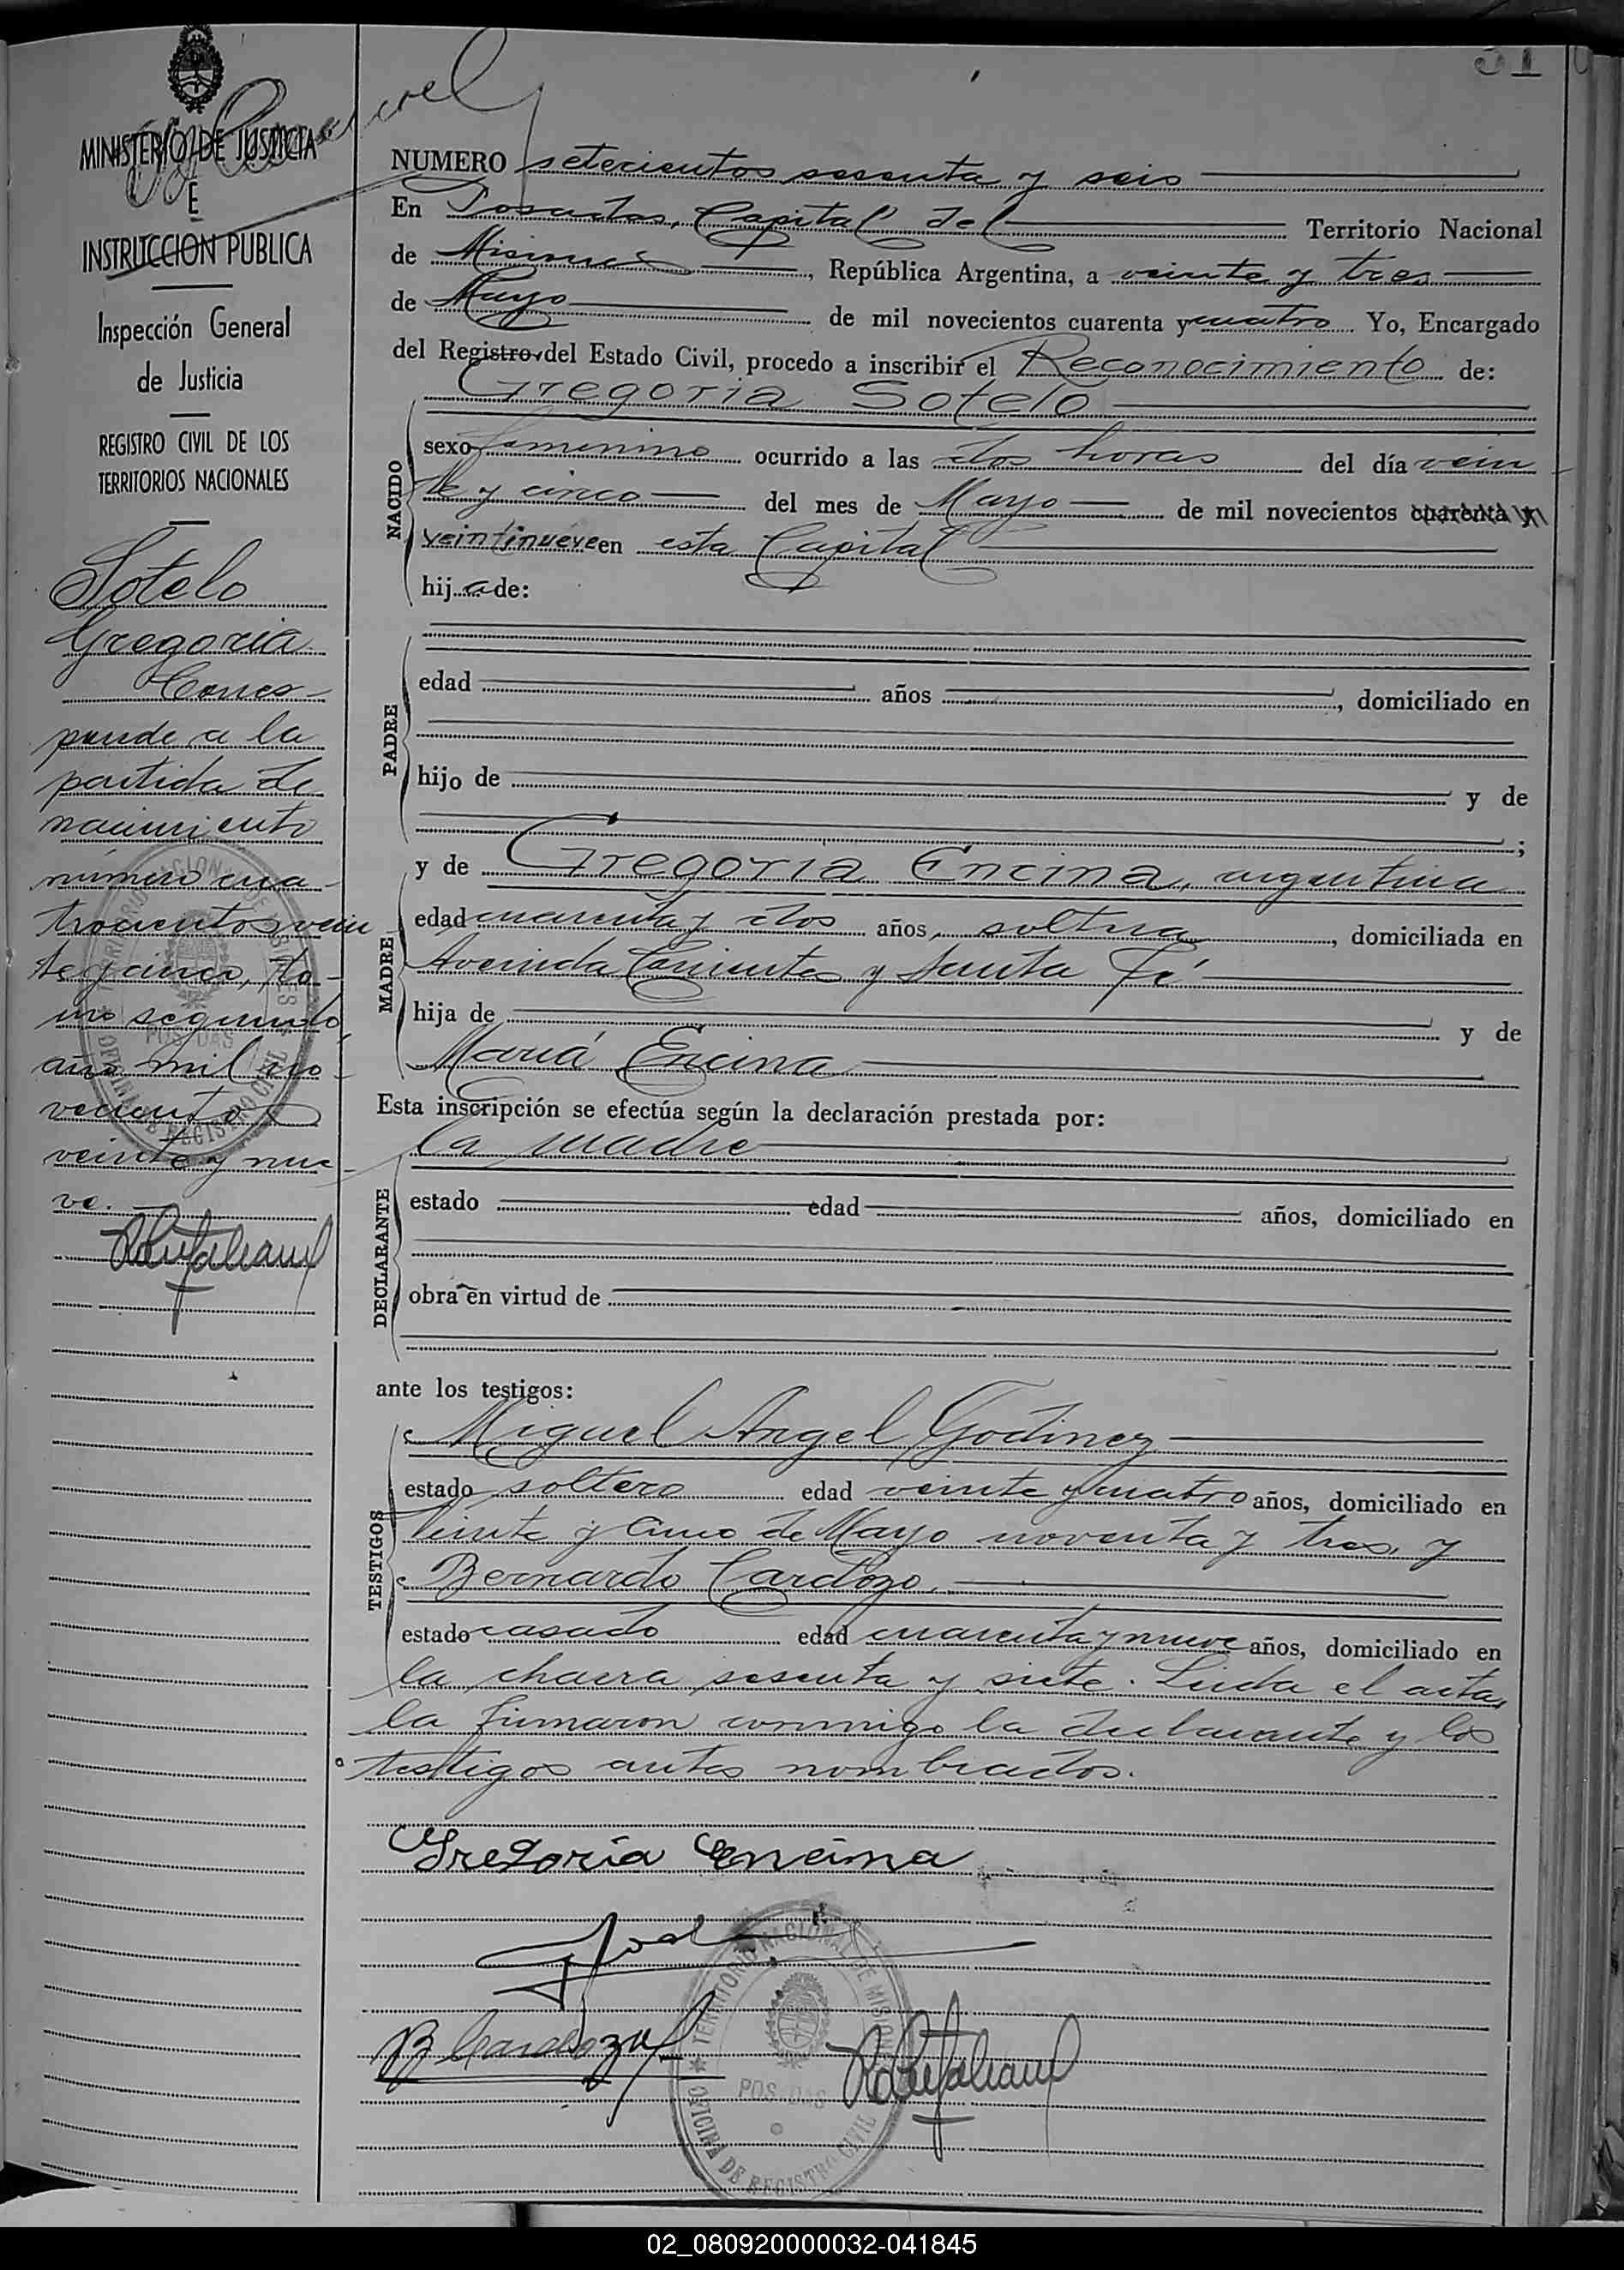 51
MINISTERIO DE JUSTICIA
E
INSTRUCCION PUBLICA
Inspección General
de Justicia
REGISTRO CIVIL DE LOS
TERRITORIOS NACIONALES
Sotelo
Gregoria
Corres-
ponde a la
partida de
nacimiento
número cua-
trocientos vein-
te y cinco, to-
mo segundo,
año mil no-
vecientos
veinte y nue-
ve.
NUMERO setecientos sesenta y seis
En Posadas, Capital del Territorio Nacional
de Misiones, República Argentina, a veinte y tres
de Mayo de mil novecientos cuarenta y cuatro Yo, Encargado
del Registro del Estado Civil, procedo a inscribir el Reconocimiento de:
Gregoria Sotelo
NACIDO
sexo femenino ocurrido a las dos horas del día vein-
te y cinco del mes de Mayo de mil novecientos cuarenta y
veintinueve en esta Capital
hija de:
PADRE
edad años, domiciliado en
hijo de y de
;
MADRE
y de Gregoria Encina, argentina
edad cuarenta y dos años, soltera, domiciliada en
Avenida Corrientes y Santa Fé
hija de y de
María Encina
Esta inscripción se efectúa según la declaración prestada por:
la madre
DECLARANTE
estado edad años, domiciliado en
obra en virtud de
ante los testigos:
TESTIGOS
Miguel Angel Godinez
estado soltero edad veinte y cuatro años, domiciliado en
Veinte y Cinco de Mayo noventa y tres, y
Bernardo Cardozo,
estado casado edad cuarenta y nueve años, domiciliado en
la chacra sesenta y siete. Leida el acta,
la firmaron conmigo la declarante y los
testigos antes nombrados.
Gregoria Encina
B Cardozo
TERRITORIO NACIONAL DE MISIONES
POSADAS
OFICINA DE REGISTRO CIVIL
02_080920000032-041845